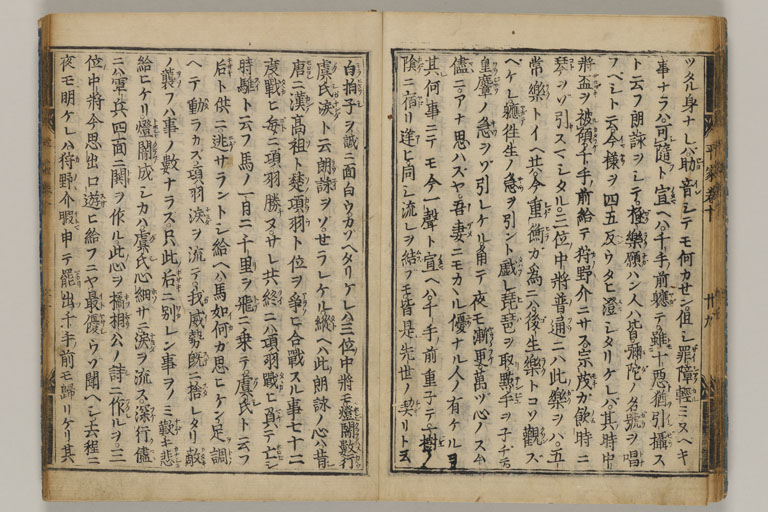 ツタル身ナレバ助音シテモ何カセン但シ罪障輕ミヌヘキ
事ナラハ可隨ト宣ヘハ千手前軈テ雖十惡猶引攝ス
ト云フ朗詠ヲシテ極樂願ハン人ハ皆彌陀ノ名號ヲ唱
フベシト云今様ヲ四五反ウタヒ澄シタリケレハ其時中
將盃ヲ被傾千手ノ前給テ狩野介ニサス宗茂カ飲時ニ
琴ヲゾ引スマシタル三位中將普通ニハ此樂ヲハ五
常樂トイヘ共今重衡カ為ニハ後生樂トコソ觀ズ
ヘケレ軈往生ノ急ヲ引ント戯レ琵琶ヲ取轉手ヲ子チテ
皇麞ノ急ヲゾ引レケル角テ夜モ漸更萬ツ心ノスム
儘ニアナ思ハズヤ吾妻ニモカヽル優ナル人ノ有ケルヨ
其何事ニテモ今一聲ト宣ヘハ千手ノ前重子テ一樹ノ
陰ニ宿リ逢ヒ同シ流レヲ結フモ皆是先世ノ契リト云
平家巻十
廿九
白拍子ヲ誠ニ面白ウカソヘタリケレハ三位中將モ燈闇數行
虞氏涙ト云朗詠ヲソせラレケル縦ヘハ此朗詠ノ心ハ昔
唐ニ漢高祖ト楚項羽ト位ヲ爭ヒ合戰スル事七十二
度戰ヒ毎ニ項羽勝ヌサレ共終ニハ項羽戰ヒ負テ亡シ
時騅ト云フ馬ノ一日ニ千里ヲ飛ニ乗テ虞氏ト云フ
后ト供ニ迯サラントシ給ヘハ馬如何カ思ヒケン足ヲ調
ヘテ動ラカズ項羽涙ヲ流テ我威勢既ニ捨レタリ敵
ノ襲フハ事ノ數ナラス只此后ニ別レン事ヲノミ歎キ悲
給ヒケリ燈闇成シカハ虞氏心細サニ涙ヲ流ス深行儘
ニハ軍兵四面ニ閧ヲ作ル此心ヲ橘相公ノ詩ニ作ルヲ三
位中將今思出口遊ヒ給フニヤ最優ウソ聞ヘシ去程ニ
夜モ明ケレハ狩野介暇申テ罷出千手ノ前モ歸リケリ其